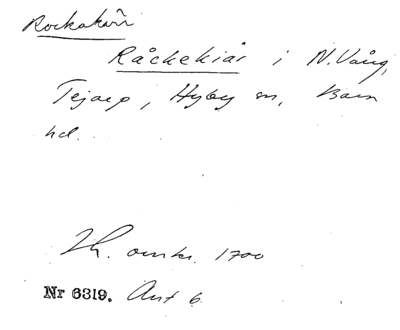 Rockakärr
Råckekiär i N. Vång,
Tejarp, Hyby sn, Bara
hd.
Lh. omkr. 1700
Nr 6319. Ant 6